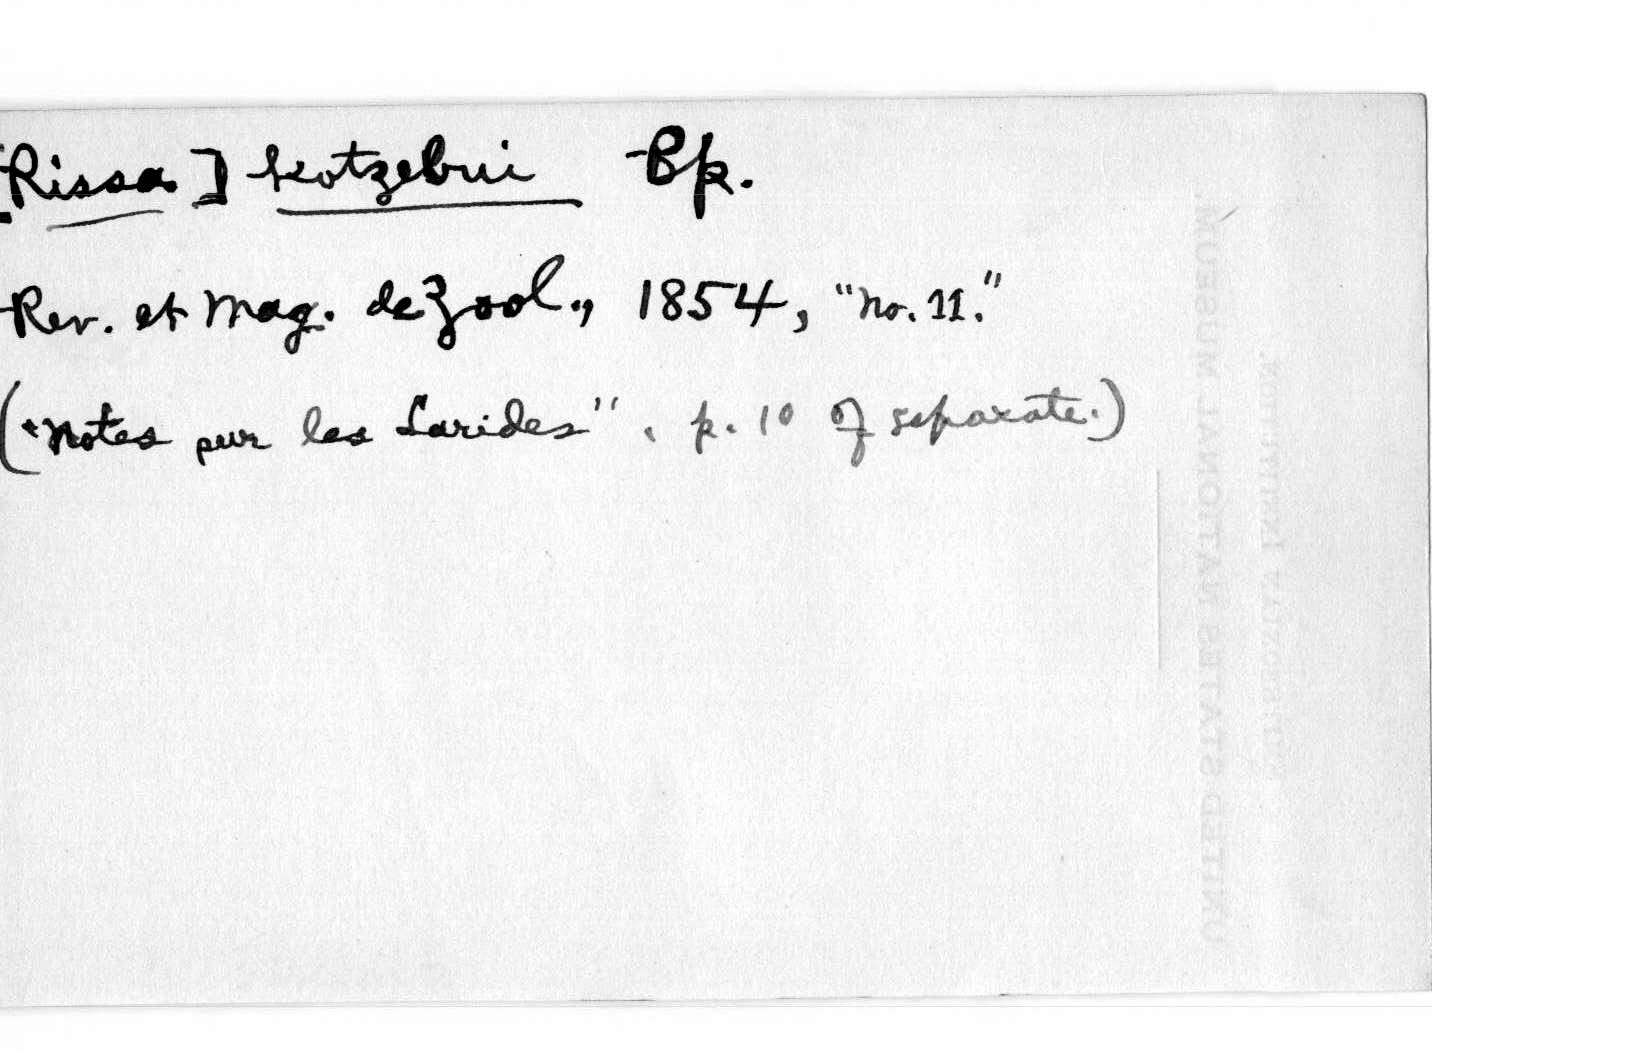 [Rissa] kotzebui Bp.
Rev. et Mag. de Zool., 1854, "No. 11."
("Notes sur les Larides", p. 10 of separate.)
UNITED STATES NATIONAL MUSEUM.
SMITHSONIAN INSTITUTION.